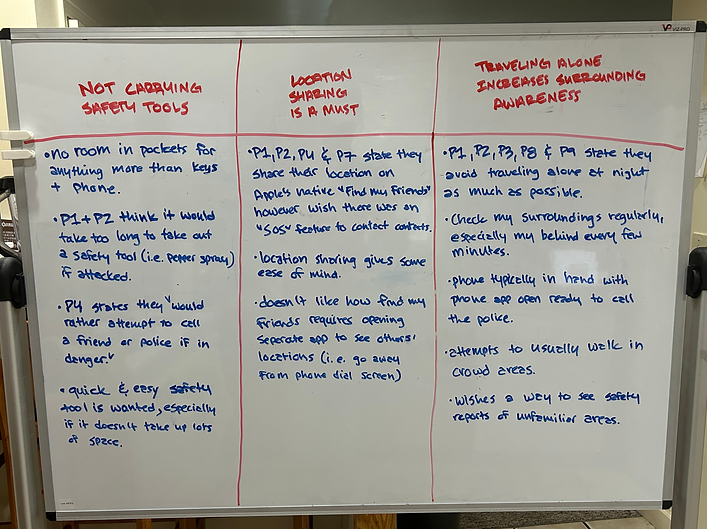 VIZ-PRO
NOT CARRYING
SAFETY TOOLS
• no room in pockets for
anything more than keys
+ phone.
• P1 + P2 think it would
take too long to take out
a safety tool (i.e. pepper spray)
if attacked.
• P4 states they "would
rather attempt to call
a friend or police if in
danger."
• quick & easy safety
tool is wanted, especially
if it doesn't take up lots
of space.
LOCATION
SHARING
IS A MUST
• P1, P2, P4 & P7 state they
share their location on
Apple's native "Find my Friends"
however wish there was an
"SOS" feature to contact contacts.
• location sharing gives some
ease of mind.
• doesn't like how find my
friends requires opening
seperate app to see others'
locations (i.e. go away
from phone dial screen)
TRAVELING ALONE
INCREASES SURROUNDING
AWARENESS
• P1, P2, P3, P8 & P9 state they
avoid traveling alone at night
as much as possible.
• Check my surroundings regularly,
especially my behind every few
minutes.
• phone typically in hand with
phone app open ready to call
the police.
• attempts to usually walk in
crowd areas.
• wishes a way to see safety
reports of unfamiliar areas.